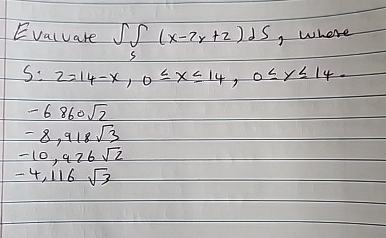 Evaluate ∫∫ (x-2y+z)dS, where
S
S: z=14-x, 0≤x≤14, 0≤y≤14.
-6860√2
-8,918√3
-10,926√2
-4,116 √3